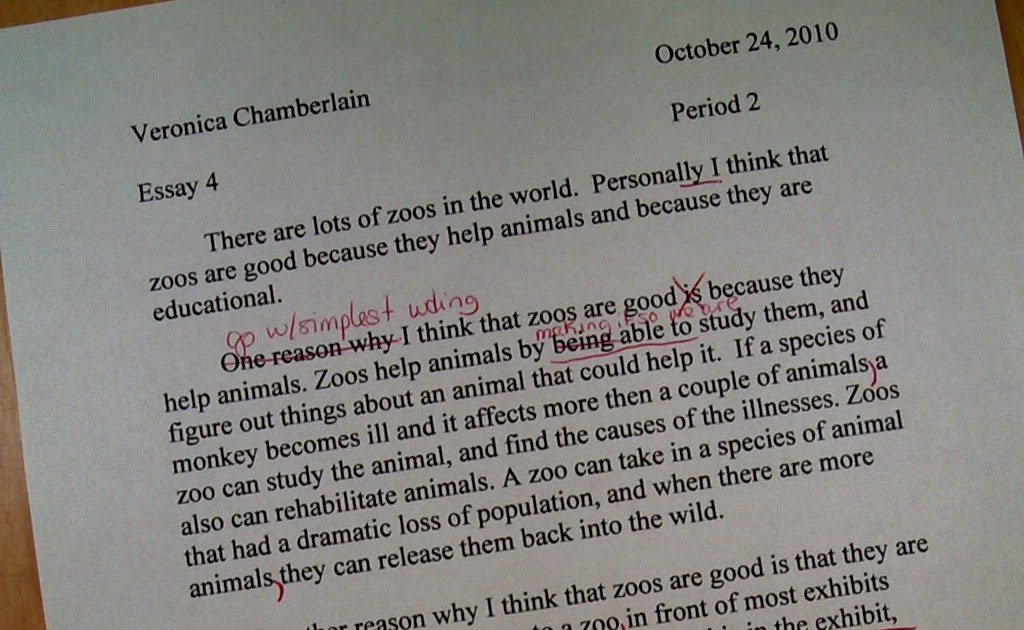 October 24, 2010
Veronica Chamberlain
Period 2
Essay 4
There are lots of zoos in the world. Personally I think that
zoos are good because they help animals and because they are
educational.
go w/simplest wding
One reason why I think that zoos are good is because they
making it so we are
help animals. Zoos help animals by being able to study them, and
figure out things about an animal that could help it. If a species of
monkey becomes ill and it affects more then a couple of animals, a
zoo can study the animal, and find the causes of the illnesses. Zoos
also can rehabilitate animals. A zoo can take in a species of animal
that had a dramatic loss of population, and when there are more
animals, they can release them back into the wild.
reason why I think that zoos are good is that they are
a zoo, in front of most exhibits
in the exhibit,